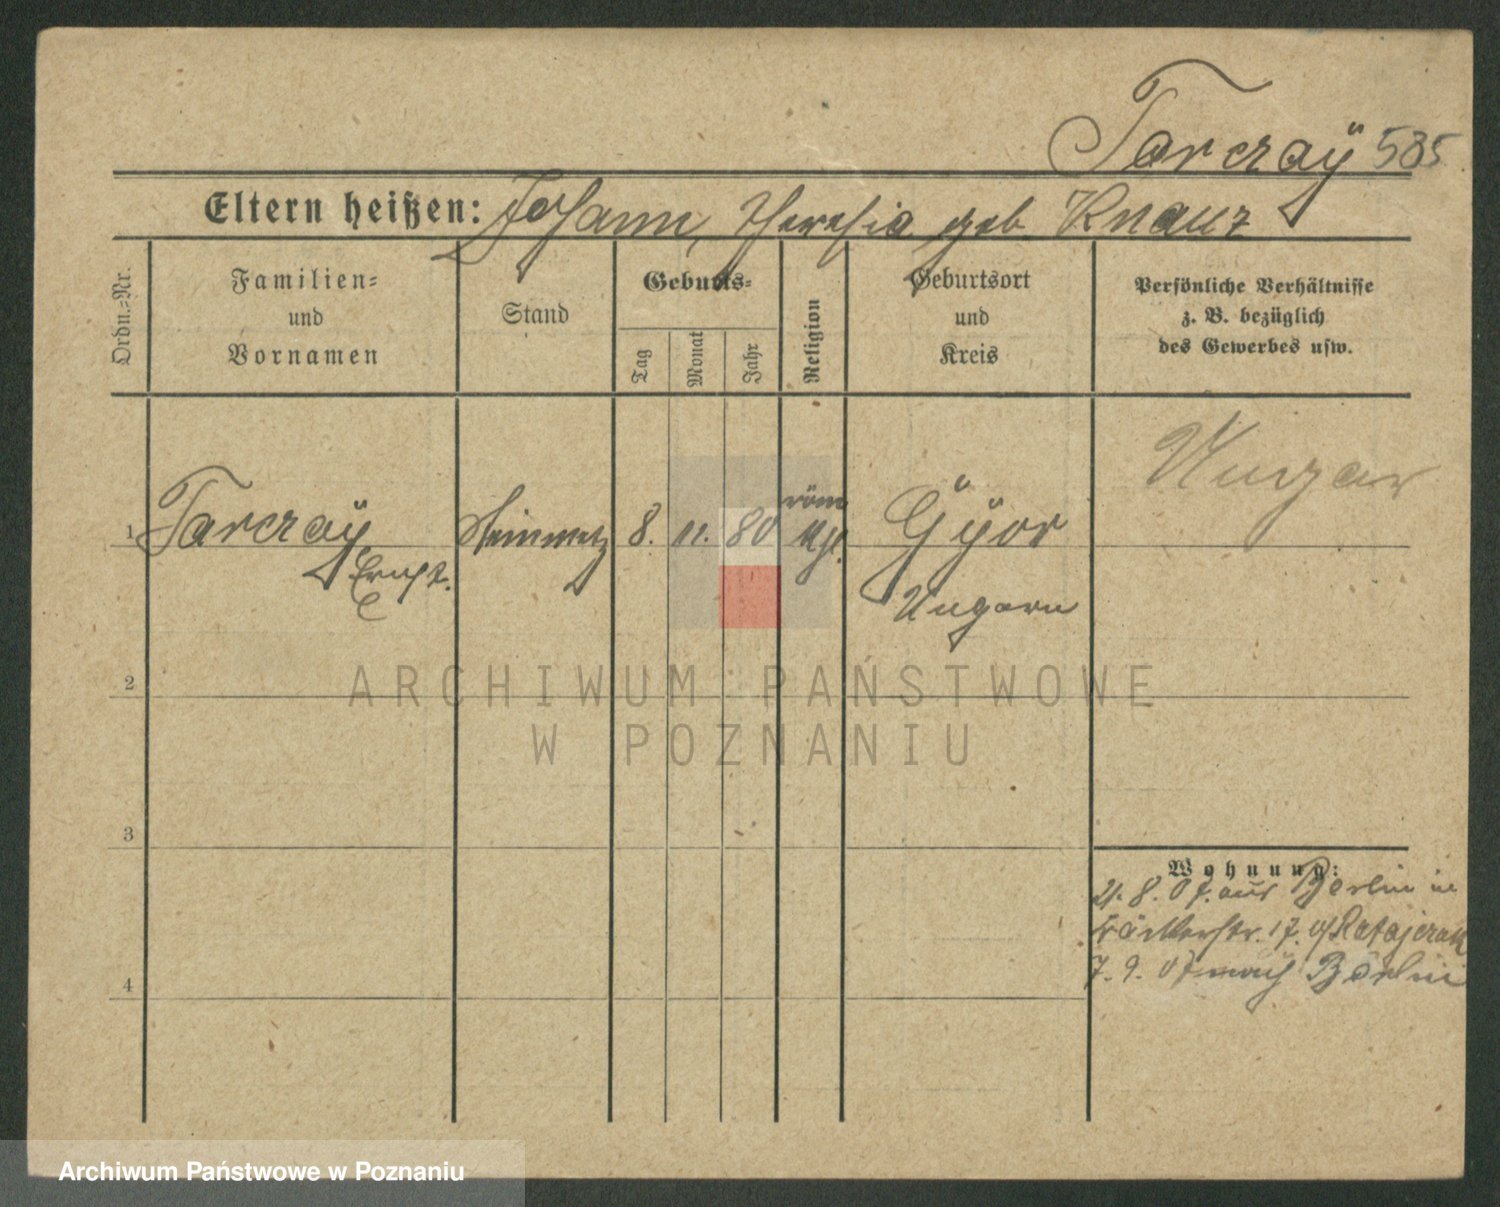 Tarczaÿ 585
Eltern heißen: Johann, Theresia geb Knauz
Ordn.-Nr.
Familien-
und
Vornamen
Stand
Geburts-
Tag
Monat
Jahr
Religion
Geburtsort
und
Kreis
Persönliche Verhältnisse
z. B. bezüglich
des Gewerbes usw.
Ungar
1 Tarczaÿ Steinmetz 8. 11. 80 röm Györ
Ernst.
Ungarn
2
ARCHIWUM PAŃSTWOWE
W POZNANIU
3
Wohnung:
21. 8. 07. aus Berlin in
17. Ratajczak
4
7. 9. 07 nach Berlin
Archiwum Państwowe w Poznaniu